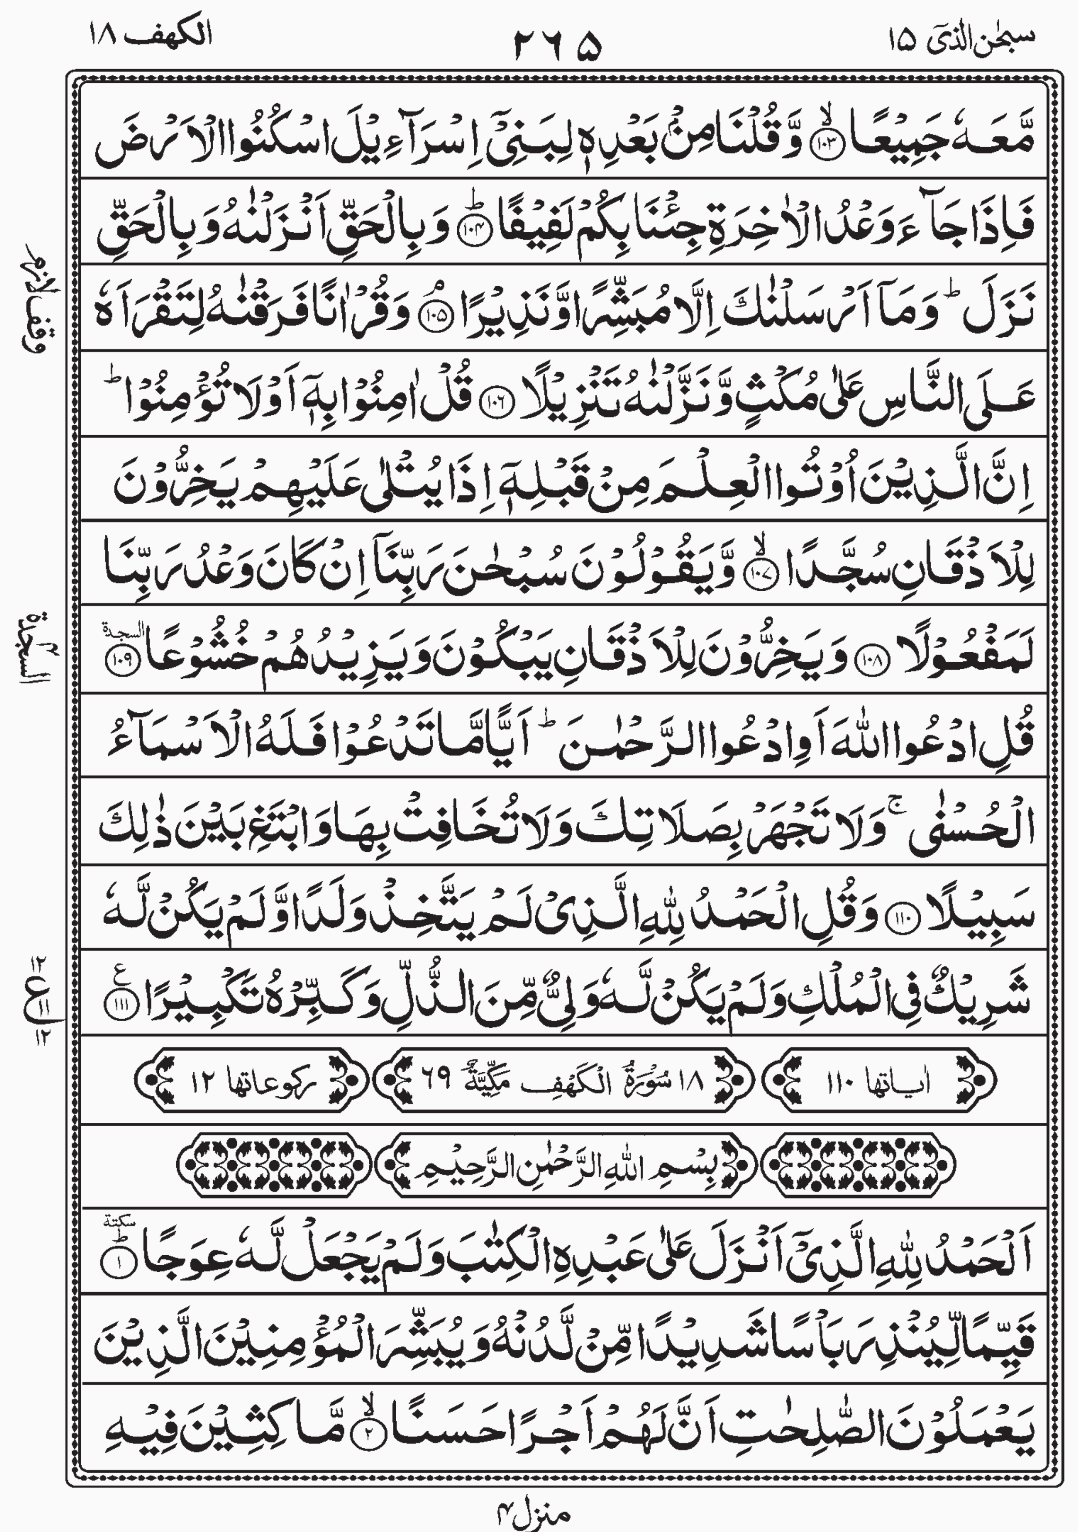 سبحٰن الذیٓ ۱۵
۲۶۵
الكهف ۱۸
مَّعَهٗ جَمِيْعًا ﴿۱۰۳﴾ۙ وَّقُلْنَا مِنْۢ بَعْدِهٖ لِبَنِيْۤ اِسْرَآءِيْلَ اسْكُنُوا الْاَرْضَ
فَاِذَا جَآءَ وَعْدُ الْاٰخِرَةِ جِئْنَا بِكُمْ لَفِيْفًا ﴿۱۰۴﴾ؕ وَبِالْحَقِّ اَنْزَلْنٰهُ وَبِالْحَقِّ
نَزَلَ ؕ وَمَاۤ اَرْسَلْنٰكَ اِلَّا مُبَشِّرًا وَّنَذِيْرًا ﴿۱۰۵﴾ۘ وَقُرْاٰنًا فَرَقْنٰهُ لِتَقْرَاَهٗ
عَلَى النَّاسِ عَلٰى مُكْثٍ وَّنَزَّلْنٰهُ تَنْزِيْلًا ﴿۱۰۶﴾ قُلْ اٰمِنُوْا بِهٖۤ اَوْ لَا تُؤْمِنُوْا ؕ
اِنَّ الَّذِيْنَ اُوْتُوا الْعِلْمَ مِنْ قَبْلِهٖۤ اِذَا يُتْلٰى عَلَيْهِمْ يَخِرُّوْنَ
لِلْاَذْقَانِ سُجَّدًا ﴿۱۰۷﴾ۙ وَّيَقُوْلُوْنَ سُبْحٰنَ رَبِّنَاۤ اِنْ كَانَ وَعْدُ رَبِّنَا
لَمَفْعُوْلًا ﴿۱۰۸﴾ وَيَخِرُّوْنَ لِلْاَذْقَانِ يَبْكُوْنَ وَيَزِيْدُهُمْ خُشُوْعًا ﴿۱۰۹﴾ السجدة
قُلِ ادْعُوا اللّٰهَ اَوِ ادْعُوا الرَّحْمٰنَ ؕ اَيًّا مَّا تَدْعُوْا فَلَهُ الْاَسْمَآءُ
الْحُسْنٰى ۚ وَلَا تَجْهَرْ بِصَلَاتِكَ وَلَا تُخَافِتْ بِهَا وَابْتَغِ بَيْنَ ذٰلِكَ
سَبِيْلًا ﴿۱۱۰﴾ وَقُلِ الْحَمْدُ لِلّٰهِ الَّذِيْ لَمْ يَتَّخِذْ وَلَدًا وَّلَمْ يَكُنْ لَّهٗ
شَرِيْكٌ فِي الْمُلْكِ وَلَمْ يَكُنْ لَّهٗ وَلِيٌّ مِّنَ الذُّلِّ وَكَبِّرْهُ تَكْبِيْرًا ﴿۱۱۱﴾ ع
اٰياتها ۱۱۰
۱۸ سُوْرَةُ الْكَهْفِ مَكِّيَّةٌ ۶۹
ركوعاتها ۱۲
بِسْمِ اللّٰهِ الرَّحْمٰنِ الرَّحِيْمِ
اَلْحَمْدُ لِلّٰهِ الَّذِيْۤ اَنْزَلَ عَلٰى عَبْدِهِ الْكِتٰبَ وَلَمْ يَجْعَلْ لَّهٗ عِوَجًا ﴿۱﴾ؕ سكتة
قَيِّمًا لِّيُنْذِرَ بَاْسًا شَدِيْدًا مِّنْ لَّدُنْهُ وَيُبَشِّرَ الْمُؤْمِنِيْنَ الَّذِيْنَ
يَعْمَلُوْنَ الصّٰلِحٰتِ اَنَّ لَهُمْ اَجْرًا حَسَنًا ﴿۲﴾ۙ مَّاكِثِيْنَ فِيْهِ
وقف لازم
السجدة
۱۲
ع
۱۱
۱۲
منزل ۴